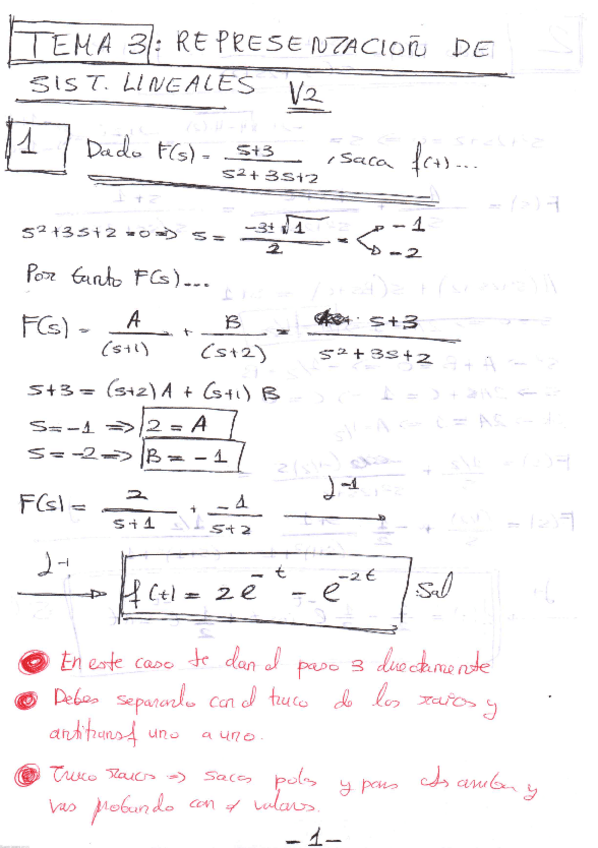 TEMA 3: REPRESENTACIOÑ DE
SIST. LINEALES V2
1 Dado F(s) = s+3 / s²+3s+2, saca f(t)...
s²+3s+2=0 => s = -3±√1 / 2 = -1 -2
Por tanto F(s)...
F(s) = A / (s+1) + B / (s+2) = s+3 / s²+3s+2
s+3 = (s+2)A + (s+1) B
s=-1 => 2=A
s=-2=> B=-1
F(s) = 2 / s+1 + -1 / s+2 L⁻¹
L⁻¹ f(t) = 2e^-t - e^-2t Sol
En este caso te dan el paso 3 directamente
Debes separarlo con el truco de los raros y
antitransf uno a uno.
Truco raros => sacas polos y pones arriba y
vas probando con valores.
-1-